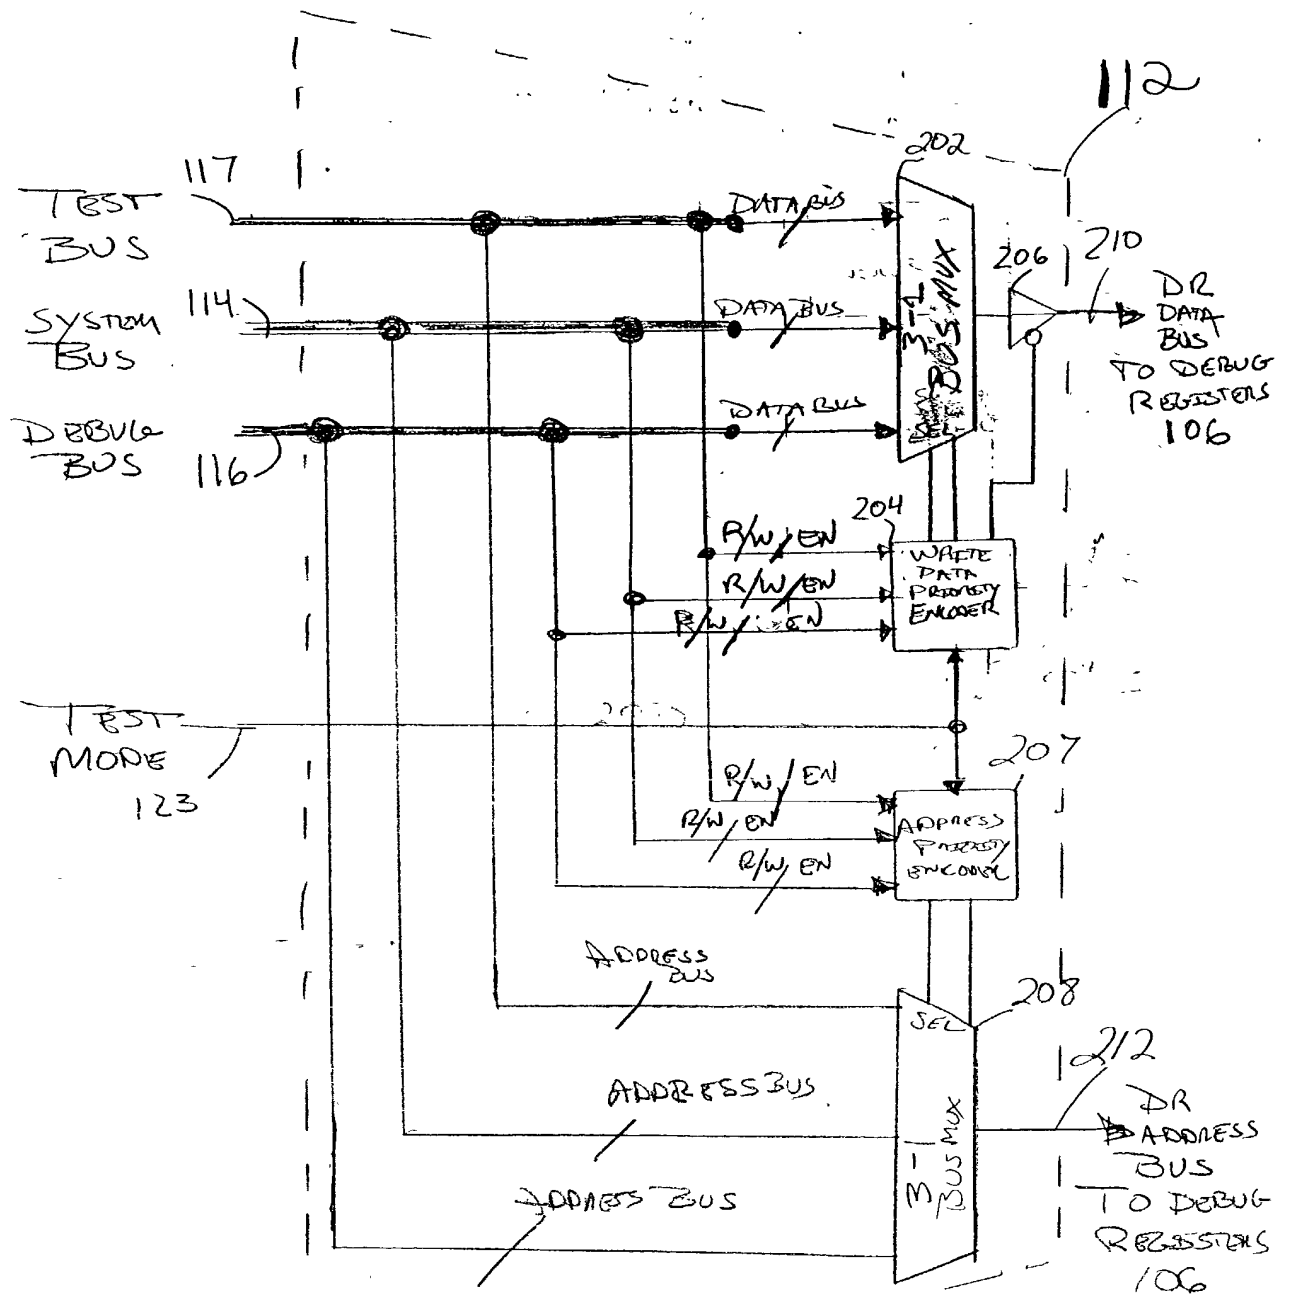 112
202
117
TEST
BUS
DATA BUS
206
210
DR
DATA
BUS
TO DEBUG
REGISTERS
106
114
SYSTEM
BUS
DATA BUS
3-1
BUS MUX
DEBUG
BUS
116
DATA BUS
204
R/W, EN
R/W, EN
R/W, EN
WRITE
DATA
PRIORITY
ENCODER
TEST
MODE
123
207
R/W, EN
R/W, EN
R/W, EN
ADDRESS
PRIORITY
ENCODER
ADDRESS
BUS
208
SEL
212
ADDRESS BUS
3-1
BUS MUX
DR
ADDRESS
BUS
TO DEBUG
REGISTERS
106
ADDRESS BUS